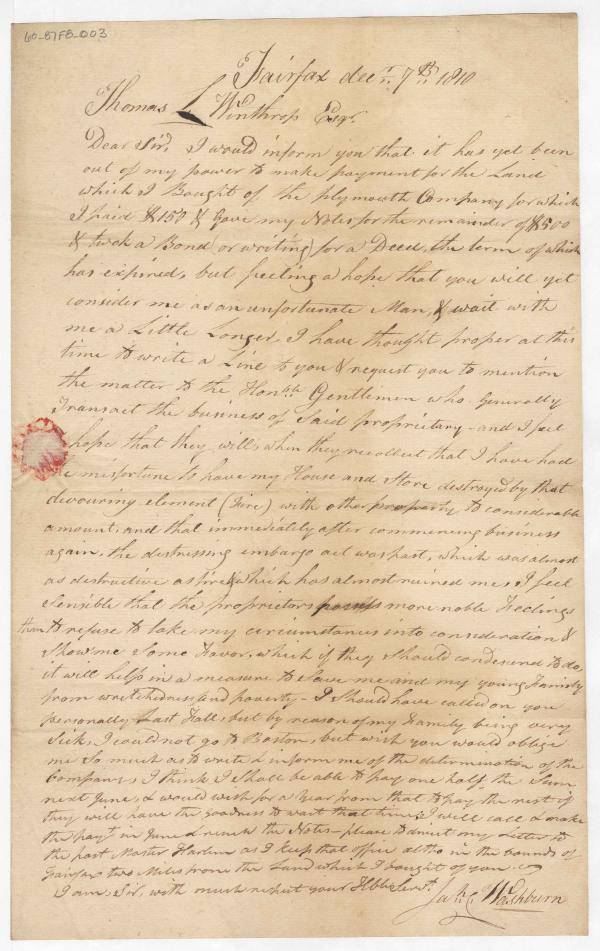 60-87FB-003
Fairfax decr. 7th 1810
Thomas L Winthrop Esqr.
Dear Sir, I would inform you that it has yet been
out of my power to make payment for the Land
which I Bought of the plymouth Company for which
I paid $150 & Gave my Notes for the remainder of $500
& took a Bond (or writing) for a Deed, the term of which
has expired, but feeling a hope that you will yet
consider me as an unfortunate Man, & wait with
me a Little Longer, I have thought proper at this
time to write a Line to you & request you to mention
the matter to the Honble. Gentlemen who Generally
Transact the business of Said propriety - and I feel
hope that they will, when they recollect that I have had
the misfortune to have my House and Store destroyed by that
devouring element (Fire) with other property to considerable
amount, and that immediately after commencing business
again, the distressing embargo act was past, which was almost
as destructive as fire & which has almost ruined me, I feel
Sensible that the proprietors possess more noble Feelings
than to refuse to take my circumstances into consideration &
Show me Some Favor, which if they Should condesend to do,
it will help in a measure to Save me and my young Family
from wretchedness and poverty - I Should have called on you
personally Last Fall, but by reason of my Family being very
Sick, I could not go to Boston, but wish you would oblige
me So much as to write & inform me of the determination of the
Company, I think I Shall be able to pay one half the Sum
next June, & would wish for a Year from that to pay the rest if
they will have the Goodness to wait that time, I will call & make
the payt. in June & renew the Notes - please to direct my Letter to
the post Master Harlem as I keep that office altho in the bounds of
Fairfax two Miles from the Land which I bought of you
I am Sir, with much respect your Hble Servt.
Jah. C. Washburn